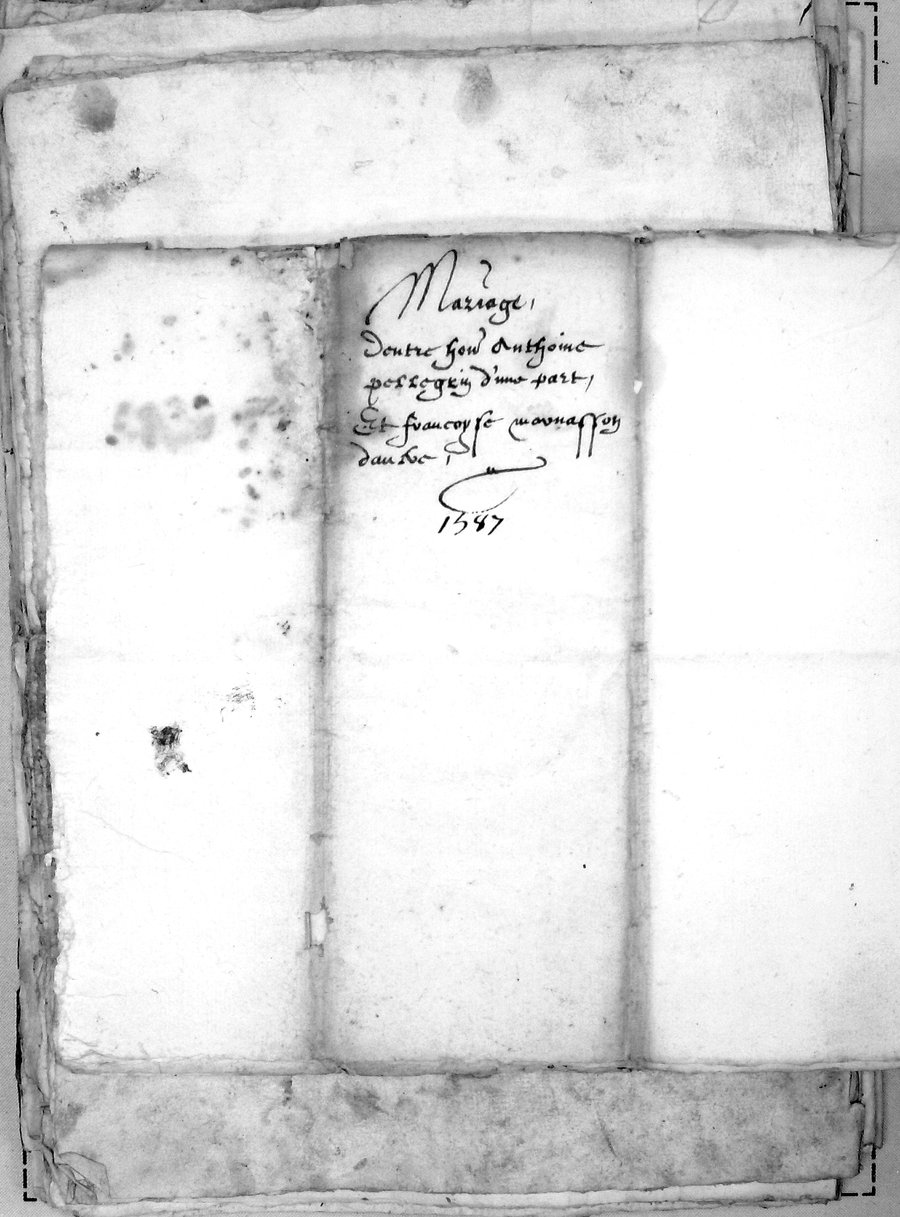 Mariage,
Dentre hon̄ Anthoine
pellegrin d'une part,
Et francoyse monasson
daultre,
1587